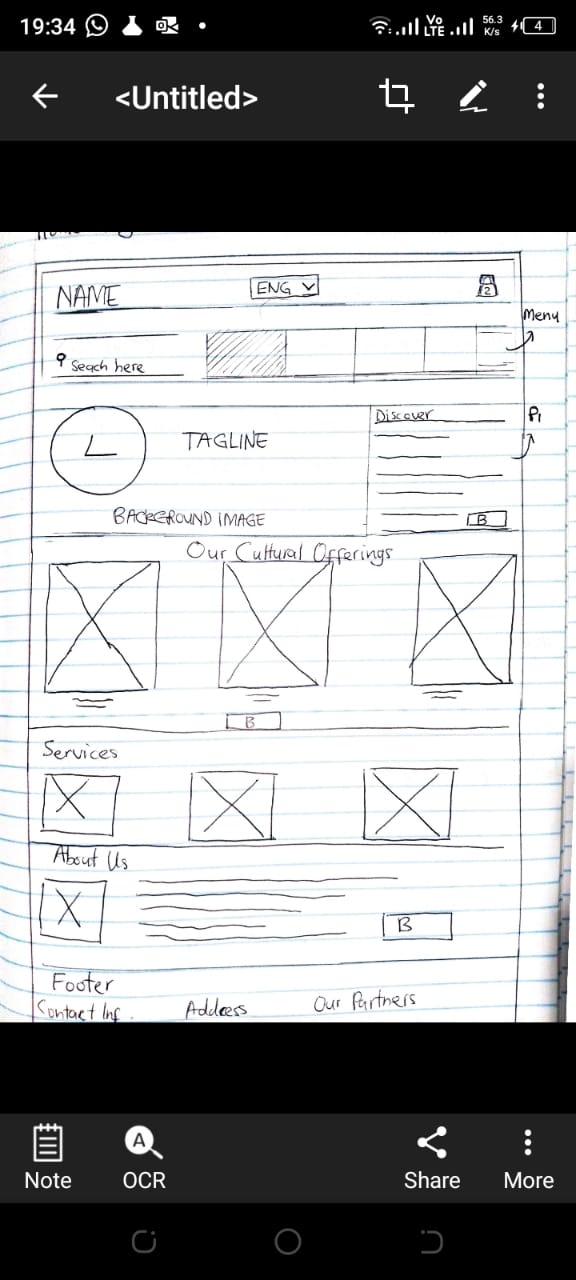 19:34
Vo
LTE
56.3
K/s
4
<Untitled>
NAME
ENG
2
Menu
Seach here
L
TAGLINE
Discover
P1
BACKGROUND IMAGE
B
Our Cultural Offerings
B
Services
About Us
B
Footer
Contact Inf.
Address
Our Partners
Note
A
OCR
Share
More